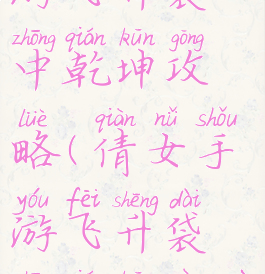 zhōng qián kūn gōng
中乾坤攻
lüè qiàn nǚ shǒu
略(倩女手
yóu fēi shēng dài
游飞升袋